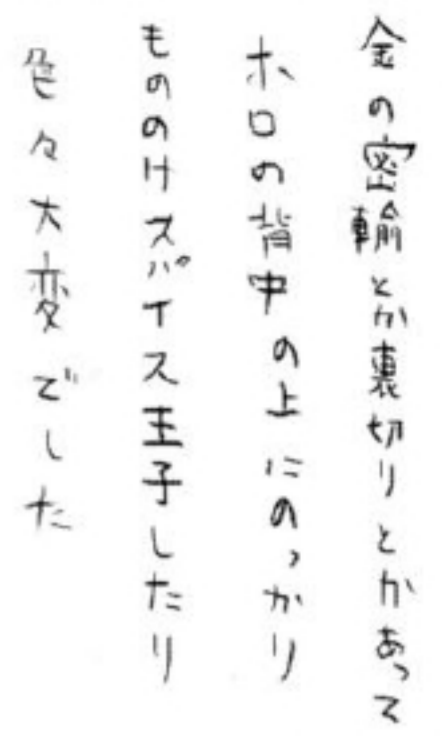 金の密輸とか裏切りとかあって
ホロの背中の上にのっかり
もののけスパイス王子したり
色々大変でした